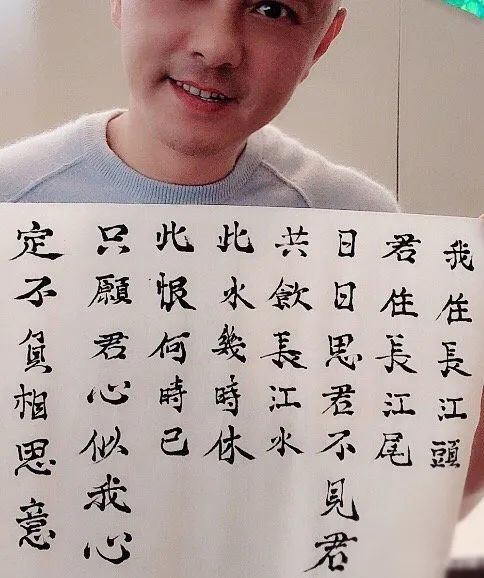 我住長江頭
君住長江尾
日日思君不見君
共飲長江水
此水幾時休
此恨何時已
只願君心似我心
定不負相思意